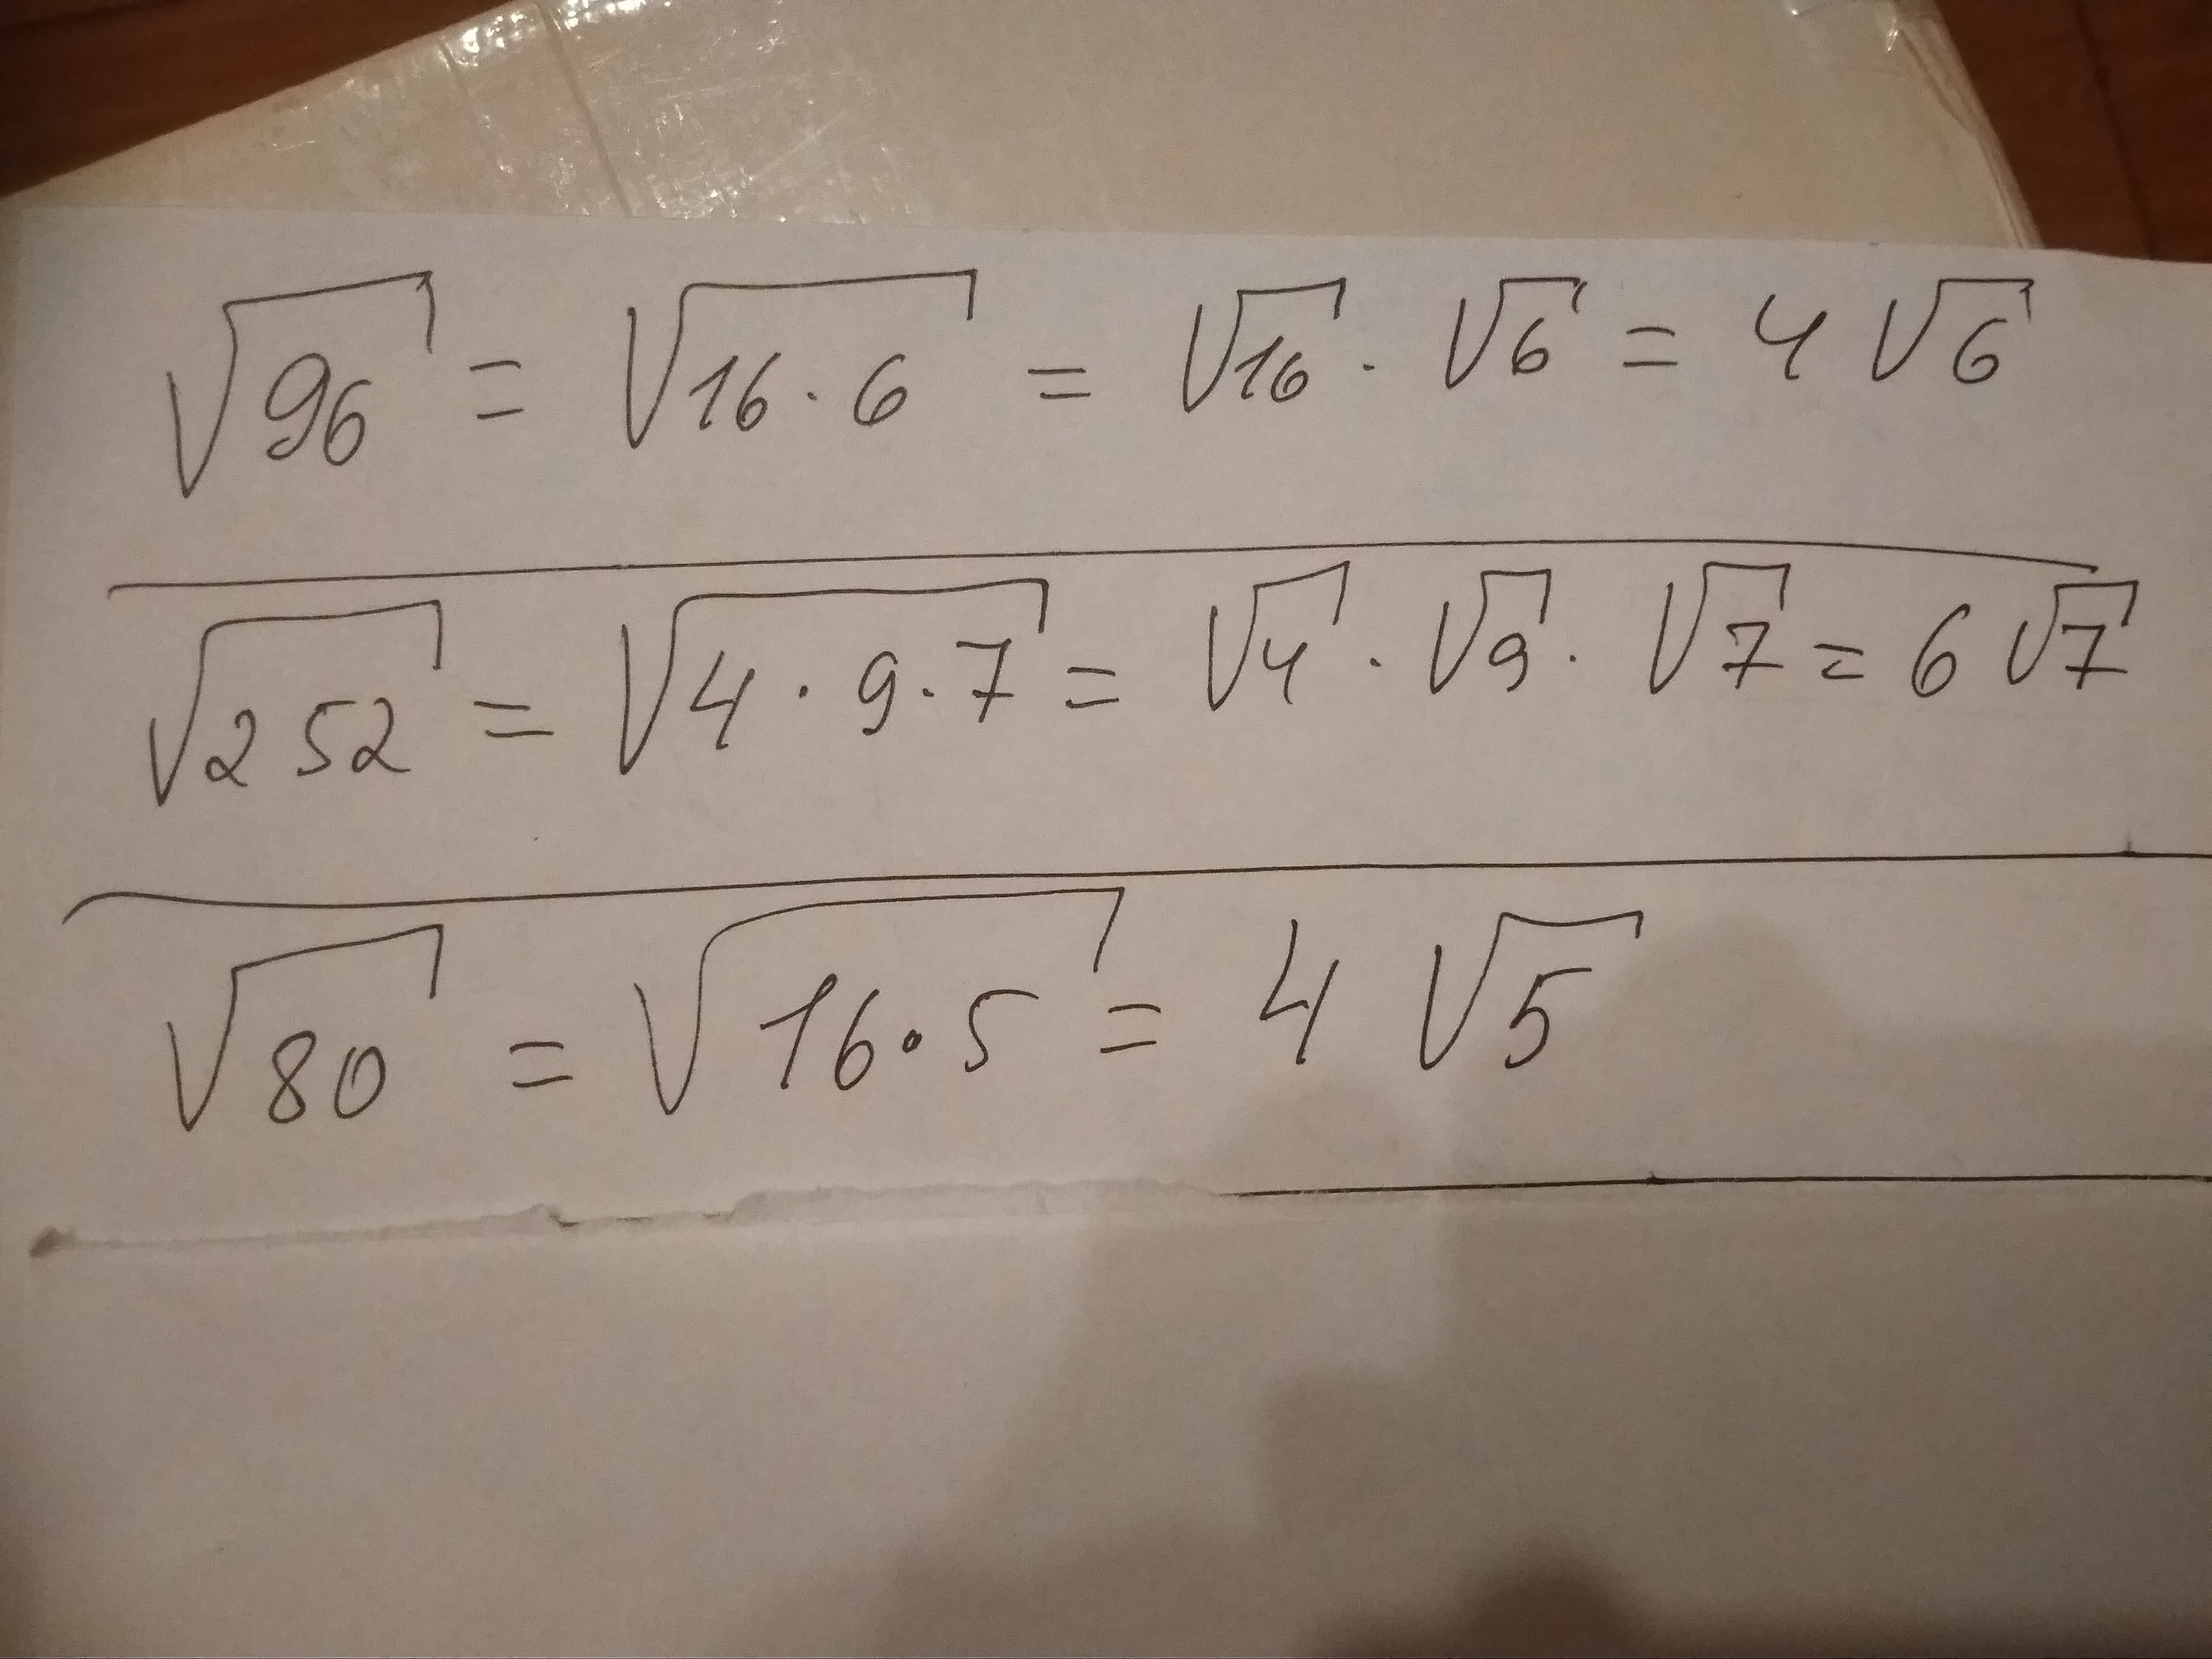 √96 = √16·6 = √16 · √6 = 4 √6
√252 = √4·9·7 = √4 · √9 · √7 = 6 √7
√80 = √16·5 = 4 √5